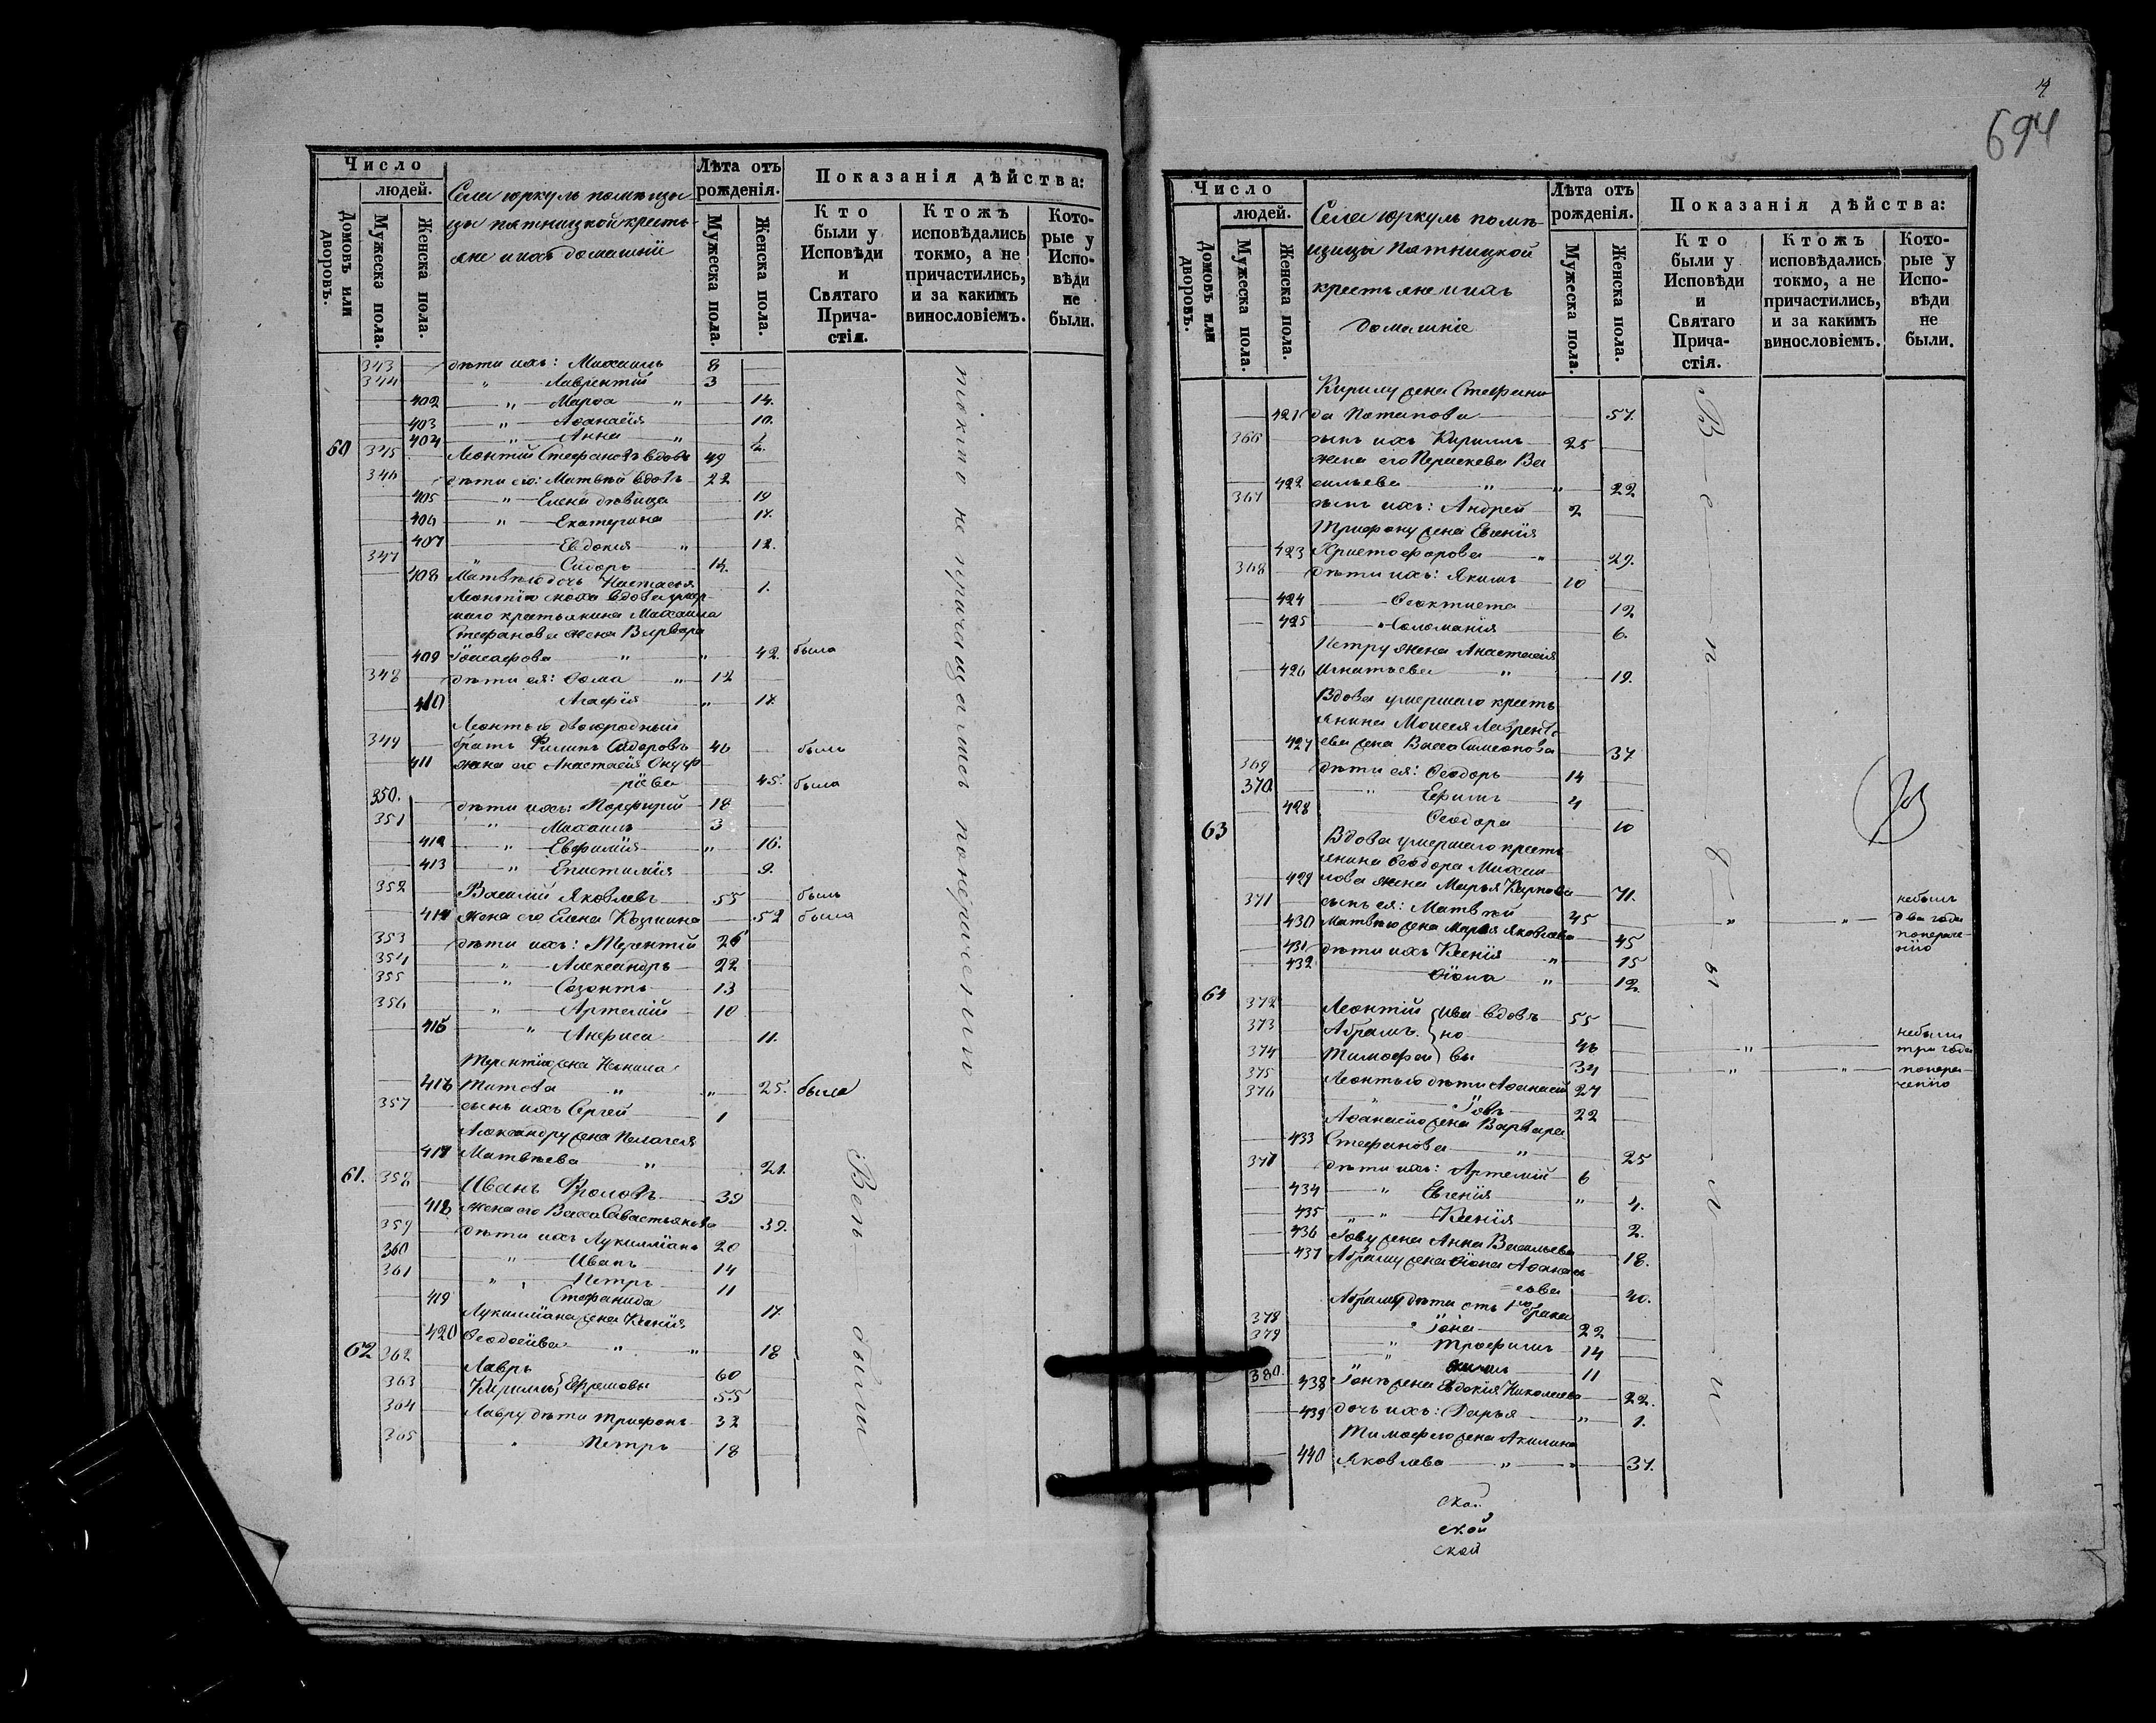 Число
людей.
Домовъ или дворовъ.
Мужеска пола.
Женска пола.
Села юркуль помѣщи
цы пятницкой кресть-
яне и ихъ домашнїи
Лѣта отъ
рожденія.
Мужеска пола.
Женска пола.
Показанія дѣйства:
Кто
были у
Исповѣди
и
Святаго
Прича-
стія.
Ктожъ
исповѣдались
токмо, а не
причастились,
и за какимъ
винословіемъ.
Кото-
рые у
Испо-
вѣди
не
были.
343 дѣти ихъ: Михаилъ 8
344 „ Лаврентій 3
402 „ Марѳа „ 14.
403 „ Аѳанасія 10.
404 „ Анна „
60 345 Леонтій Стефановъ вдовъ 49
346 дѣти его: Матвѣй вдовъ 22
405 „ Елена дѣвица 19
406 „ Екатерина 17.
407 Евдокия „ 12.
347 „ Сидоръ 14.
408 Матвѣю дочь Настасья 1.
Леонтію сноха вдова умер-
шаго крестьянина Михаила
Стефанова жена Варвара
409 Іоасафова „ „ 42. была
348 дѣти ея: Ѳома „ 12
410 Агафія „ 17.
Леонтью двоюродный
349 братъ Филипъ Сидоровъ 46 былъ
411 жена его Анастасія Онуф-
ріева 45. была
350. дѣти ихъ: Порфирій 18
351 „ Михаилъ 3
412 „ Евфимія „ 16.
413 „ Епистимія 9.
352 Василий Яковлевъ 55 былъ
414 жена его Елена Козмина 52 была
353 дѣти ихъ: Терентій 26
354 „ Александръ 22
355 „ Созонтъ 13
356 „ Артемій 10
415 „ Анфиса 11.
Терентію жена Ненила
416 Титова „ „ 25. была
357 сынъ ихъ Сергей 1
Александру жена Пелагея
417 Матвѣева „ 21.
61. 358 Иванъ Фроловъ 39
418 жена его Васса Савастьянова 39.
359 дѣти ихъ Лукилліанъ 20
360 „ Иванъ 14
361 „ Петръ 11
419 Стефанида 17.
Лукилліана жена Ксенія
420 Ѳеодосіева „ „ 18
62 362 Лавръ 60
363 Кирилъ} Ефремовы 55
364 Лавру дѣти Трифонъ 32
365 „ Петръ 18
токмо не причащались по нерачению
Вси были
694
Число
людей.
Домовъ или дворовъ.
Мужеска пола.
Женска пола.
Села юркуль помѣ-
щицы Пятницкой
крестьяне и ихъ
домашніе
Лѣта отъ
рожденія.
Мужеска пола.
Женска пола.
Показанія дѣйства:
Кто
были у
Исповѣди
и
Святаго
Прича-
стія.
Ктожъ
исповѣдались
токмо, а не
причастились,
и за какимъ
винословіемъ.
Кото-
рые у
Испо-
вѣди
не
были.
Кирилу жена Стефани
421 да Потапова 57.
366 сынъ ихъ Кирилъ 25
жена его Параскева Ва
422 сильева „ „ 22
367 сынъ ихъ: Андрей 2
Трифону жена Евгенія
423 Христофорова „ 29.
368 дѣти ихъ: Якимъ 10
424 Ѳеоктиста 12
425 „ Соломанія 6.
Петру жена Анастасія
426 Игнатьева „ 19.
Вдова умершаго кресть
янина Моисея Лаврентъ
427 ева жена Васса Симеонова 37
369 дѣти ея: Ѳеодоръ 14
370. „ Ефимъ 4
428 Ѳеодора 10
63 Вдова умершаго кресть
янина Ѳеодора Михаи
429 лова жена Марья Карпова 71.
371 сынъ ея: Матвѣй 45 „ „ небылъ
430 Матвѣю жена Марья Яковлева 45 два года
понераче-
нію
431 дѣти ихъ Ксенія „ 15
432 Ѳіона „ 12.
64 372 Леонтій } Ива вдовъ 55
373 Абрамъ. } но 46 „ небыли
374 Тимоѳей } вы 34 „ „ три года
375 Леонтью дѣти Аѳанасій 27 понера
376 „ Іовъ 22 ченію
Аѳанасію жена Варвара
433 Стефанова „ 25
377 дѣти ихъ: Артемій 6
434 „ Евгенія „ 4.
435 „ „ Ксенія 2.
436 Іову жена Анна Васильева 18.
437 Абраму жена Ѳіона Аѳанась
=ева 40.
Абраму дѣти отъ 1го брака
378 „ Іона 22
379 „ Трофимъ 14
380. 11
438 Іонѣ жена Евдокія Николаева 22.
439 дочь ихъ: Дарья „ 1.
Тимоѳею жена Акилина
440 Яковлева „ „ 37.
Вси были
ской
ской
ской